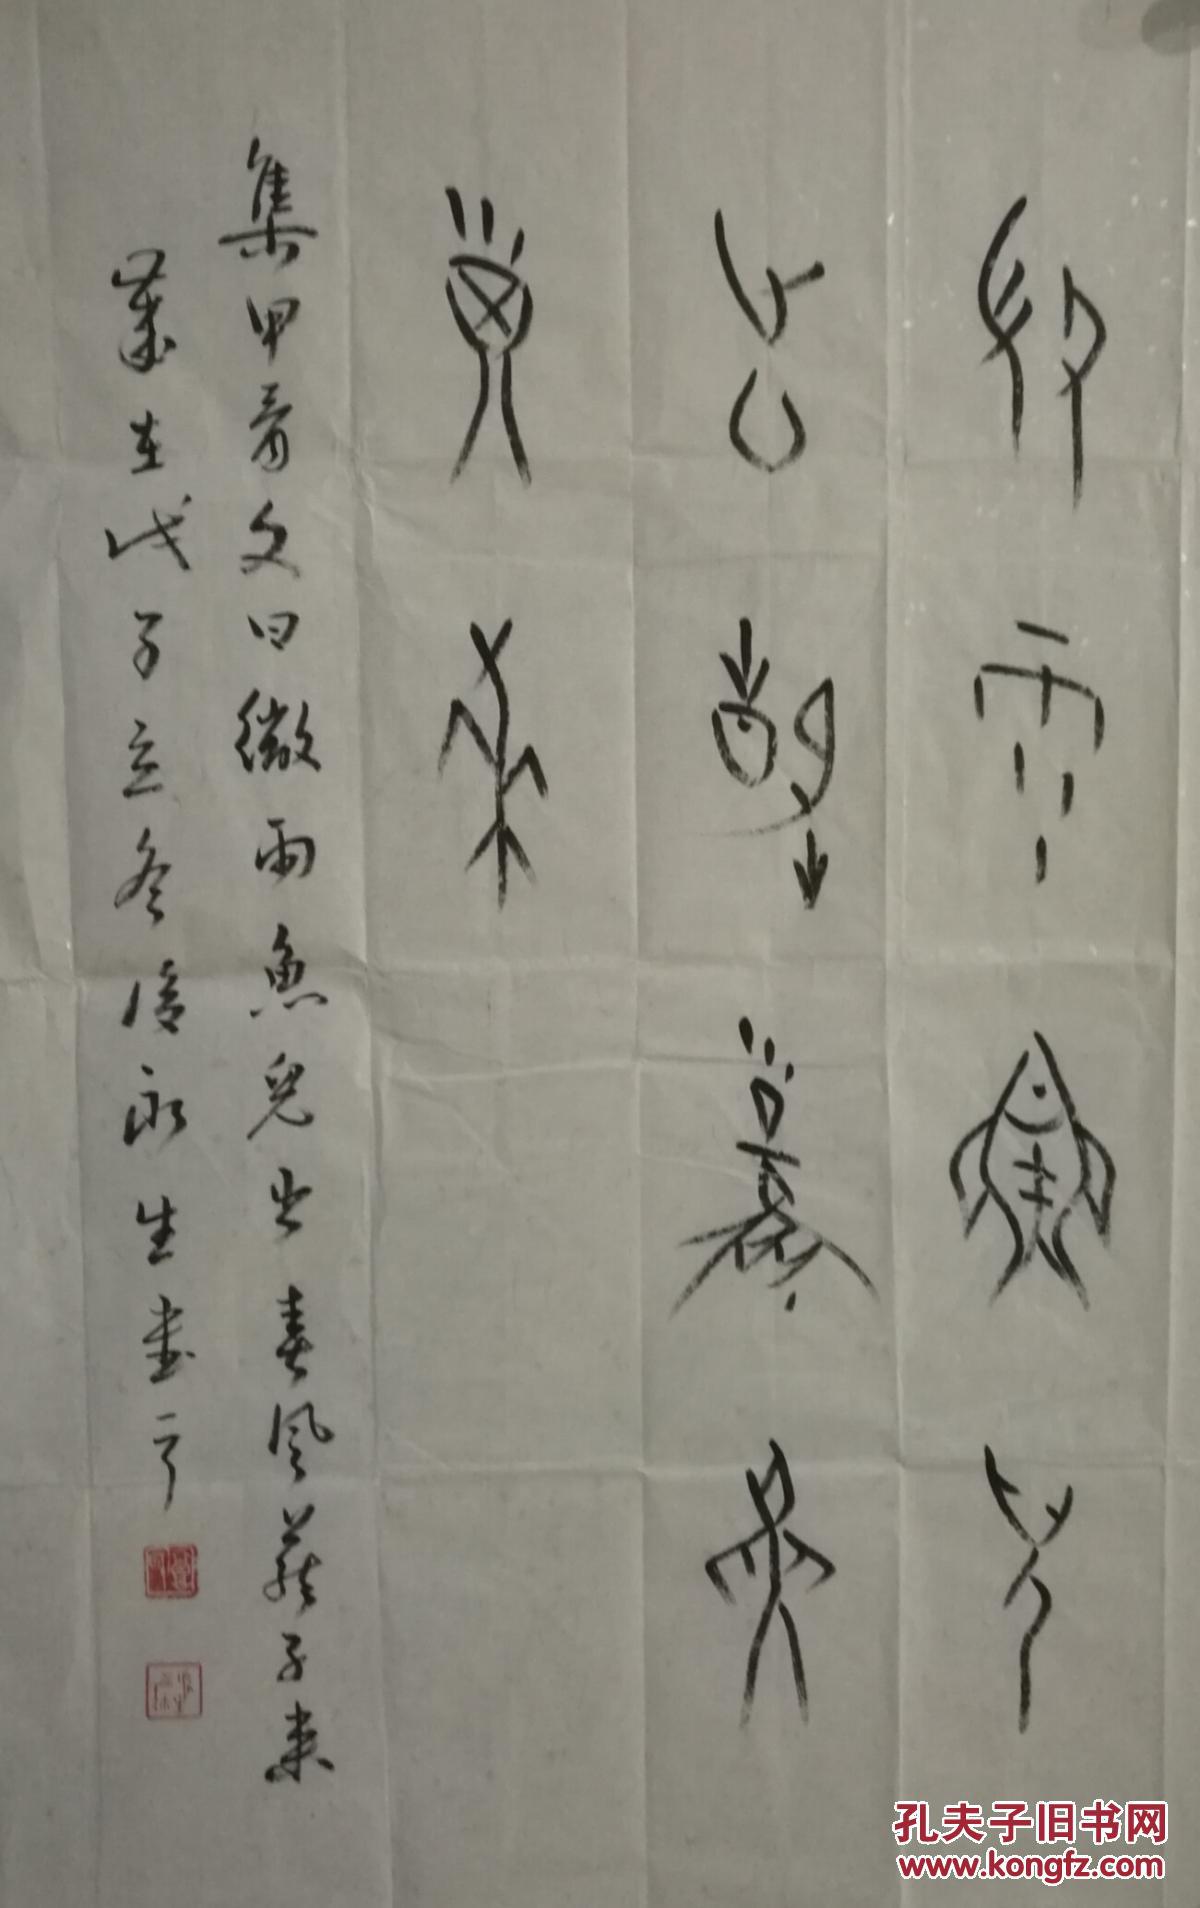 微雨魚兒
出春風燕
子來
集甲骨文曰微雨魚兒出春風燕子來
歲在戊子立冬永生書
孔夫子旧书网
www.kongfz.com